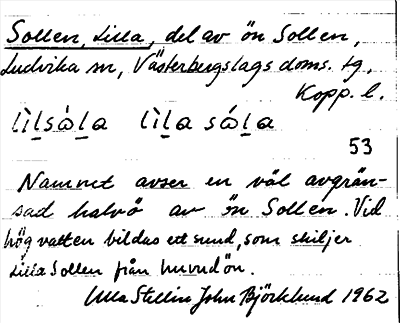 Sollen, Lilla, del av ön Sollen,
Ludvika sn, Västerbergslags doms. tg,
Kopp. l.
lìl̠sώl̠a lìl̠a sάl̠a
53
Namnet avser en väl avgrän-
sad halvö av ön Sollen. Vid
högvatten bildas ett sund, som skiljer
Lilla Sollen från huvudön.
Ulla Stellin John Björklund 1962